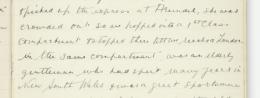 up the express at she was
crowded out so we popped into a 1st Class
compartment & stopped there till we reached London
In the same compartment was an elderly
gentleman who had spent many years in
New South Wales & was a great sportsman